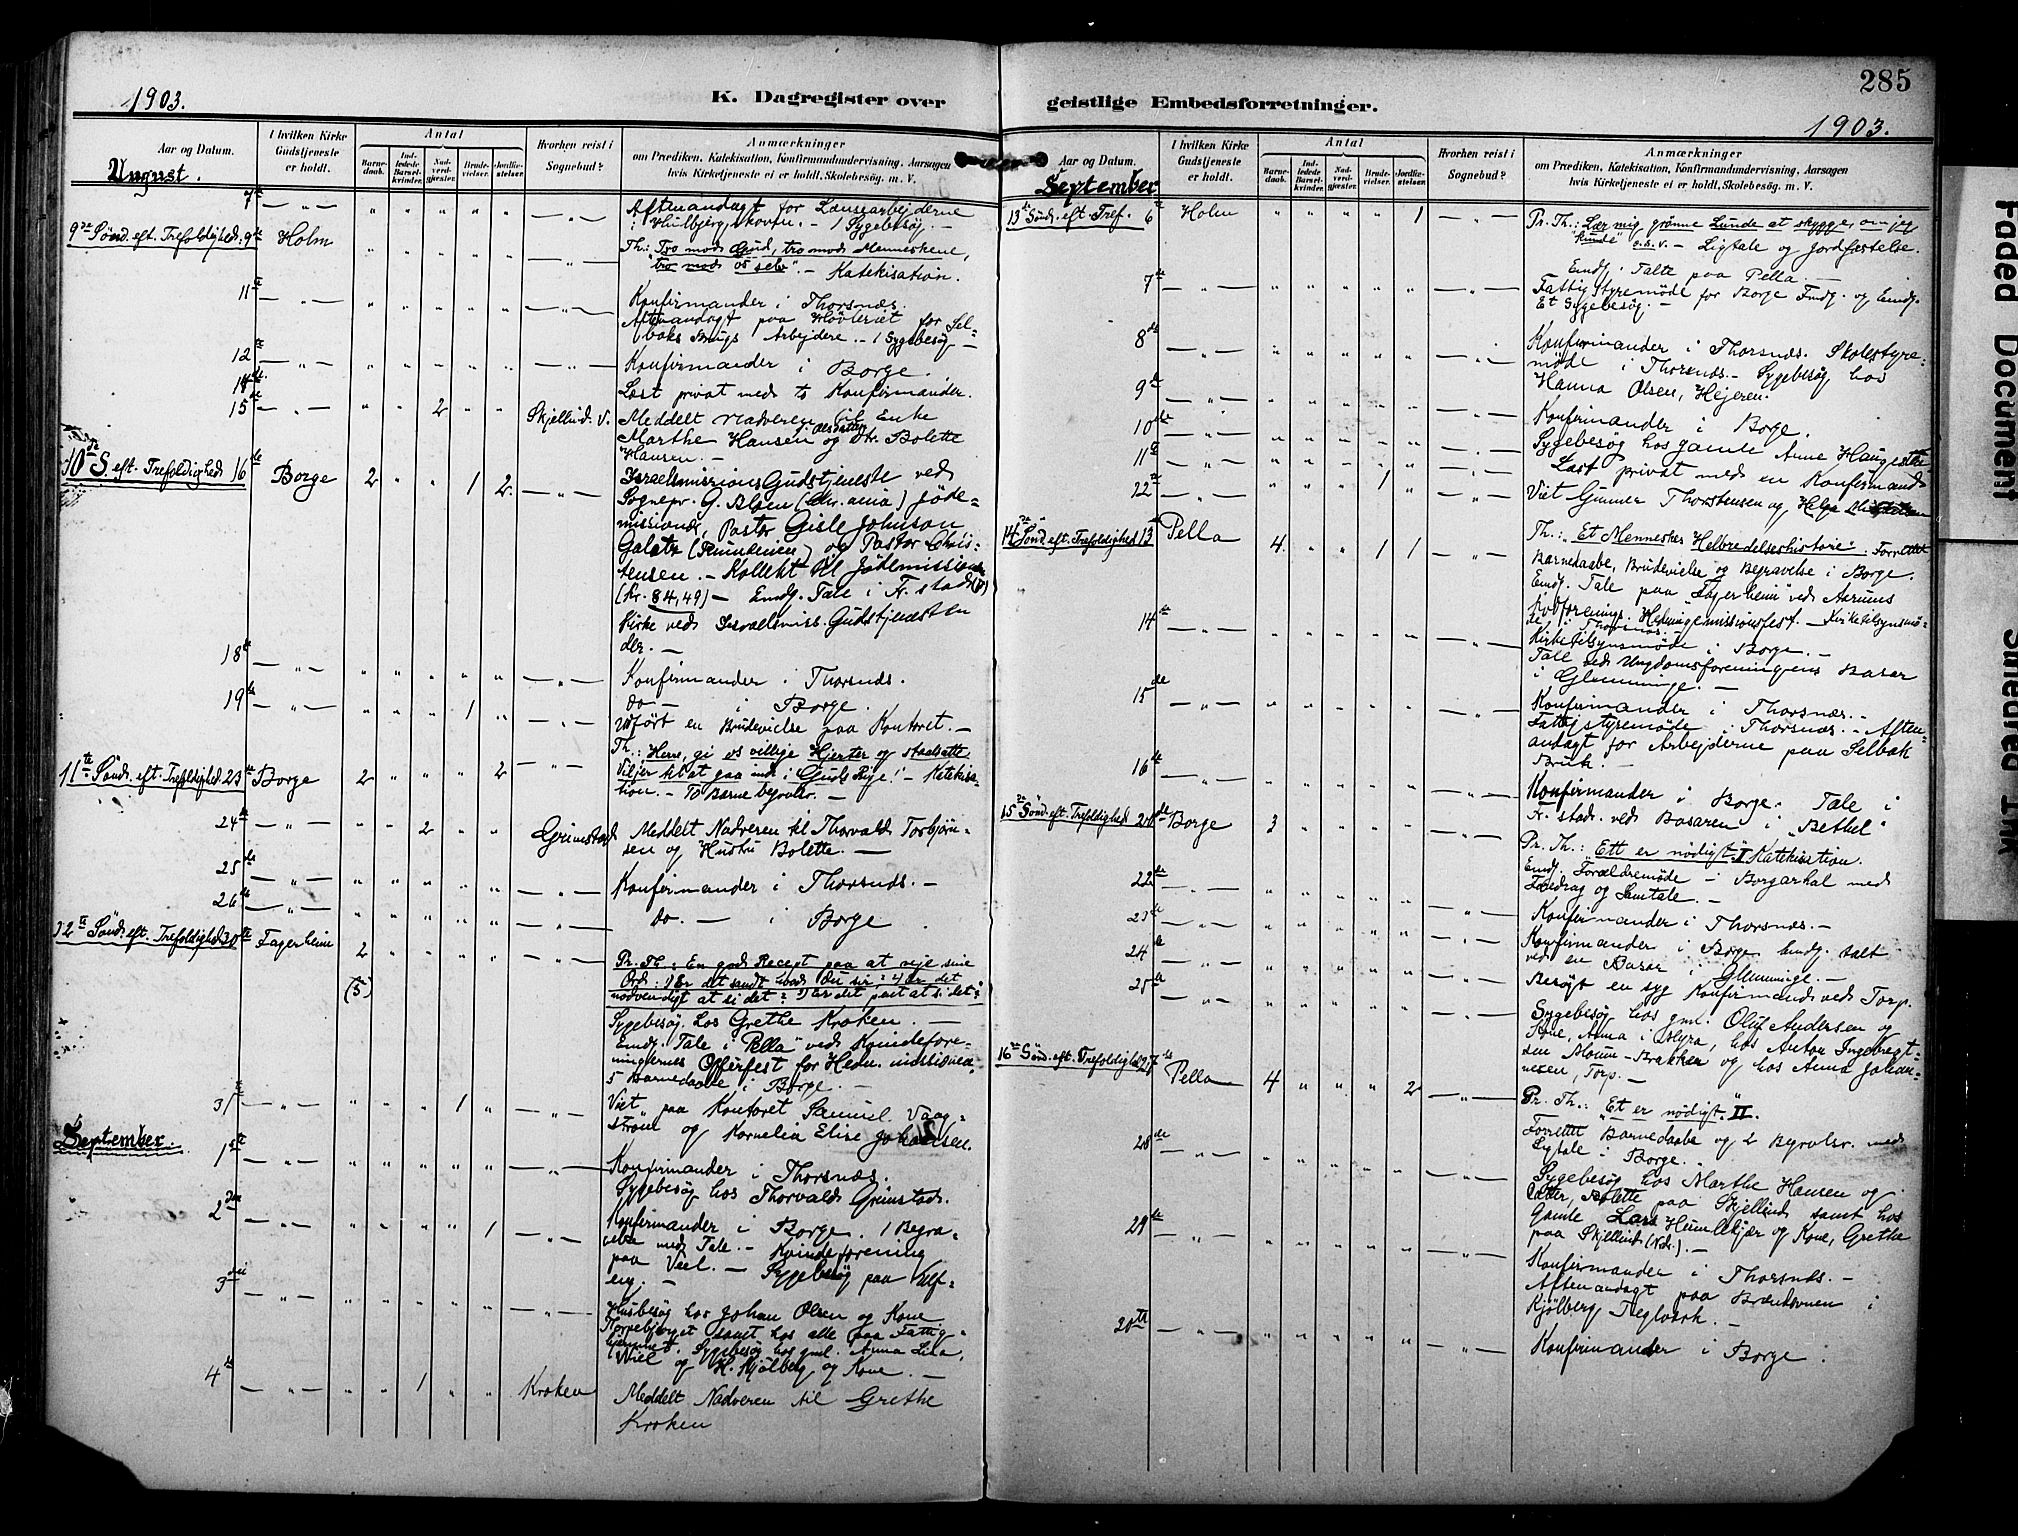 1903.
K. Dagregister over
Aar og Datum.
I hvilken Kirke Gudstjeneste er holdt.
Antal
Barnedaab.
Indledede Barselkvinder.
Nadverdgjester.
Brudevielser.
Jordfæstelser.
Hvorhen reist i Sognebud?
Anmærkninger
om Prædiken, Katekisation, Konfirmandundervisning, Aarsagen
hvis Kirketjeneste ei er holdt, Skolebesøg, m. V.
August.
7de — " — Aftenandagt for Lænsearbejderne
i Hulbjergskoven. – 1 Sygebesøg. –
9de Sönd. eft. Trefoldighed: 9de Holm
Th: Tro mod Gud, tro mod Menneskene,
"tro mod os selv" – Katekisation.
11te — " — Konfirmander i Thorsnæs.
Aftenandagt paa Høvleriet for Sel-
baks Brugs Arbejdere. – 1 Sygebesøg –
12te — " — Konfirmander i Borge.
14de. Læst privat med to Konfirmander.
15de — " — 2 Skjellind. V. Meddelt Nadveren til Enke
Marthe Hansen og Dtr. Bolette
Hansen. –
10de S. eft. Trefoldighed 16de Borge 2 " " 1 2
Israelsmissions Gudstjeneste ved
Sognepr. G. Blom (Chr.ania) Jöde-
missionær, Pastor Gisle Johnson
Galatz (Rumænien) og Pastor Chris-
tensen. – Kollekt til Jödemissionen
(Kr. 84,49) – Emdg. Tale i Fr. stad
Kirke ved Israelsmiss. Gudstjenesten
der. –
18de — " — Konfirmander i Thorsnæs.
19de — " — 1 do — i Borge.
Udført en Brudevielse paa Kontoret. –
11te Sönd. eft. Trefoldighed 23de Borge 2 " " " 2
Th.: Herre, gi os villige Hjerter og stadsatte
Viljer til at gaa ind i Guds Rige! – Katekisa-
tion. – To Barnebegravelser. –
24de — " — 2 Grimstad Meddelt Nadveren til Thorvald Torbjørn-
sen og Hustru Bolette. –
25de — " — Konfirmander i Thorsnæs. –
26de — " — do. — i Borge
12te Sönd. eft. Trefoldighed 30te Fagerheim 2
(5)
Pr. Th.: En god Recept paa at veje sine
Ord: 1) Er det sandt hvad Du sir? 2) Er det
nødvendigt at si det? 3) Er det pent at si det?
Sygebesøg hos Grethe Kroken. –
Emdg. Tale i "Pella" ved Kvindefore-
ningernes Offerfest for Hedn. missionen,
5 Barnedaabe i Borge. –
31te — " — 1 Viet paa Kontoret Samuel Vaag-
strøm og Kornelia Elise Johansen.
September.
1ste — " — Konfirmander i Thorsnæs.
Sygebesøg hos Thorvald Grimstad.
2den — " — 1 Konfirmander i Borge. 1 Begra-
velse med Tale. – Kvindeforening
paa Viel. – Sygebesøg paa Elf-
eng. –
3die — " — Husbesøg hos Johan Olsen og Kone
Torvebjerget samt hos alle paa Fattig-
hjemmet. Sygebesøg hos gml. Anna Lisa,
Wiel og H. Kjölberg og Kone. –
4de — " — 1 Kroken Meddelt Nadveren til Grethe
Kroken
285
geistlige Embedsforretninger.
1903.
Aar og Datum.
I hvilken Kirke Gudstjeneste er holdt.
Antal
Barnedaab.
Indledede Barselkvinder.
Nadverdgjester.
Brudevielser.
Jordfæstelser.
Hvorhen reist i Sognebud?
Anmærkninger
om Prædiken, Katekisation, Konfirmandundervisning, Aarsagen
hvis Kirketjeneste ei er holdt, Skolebesøg, m. V.
September
13de Sönd. eft. Tref. 6te Holm " " " " 1
Pr. Th.: Lær mig grønne Lunde at skygge, om jeg
kunde" o.s.v. – Ligtale og Jordfæstelse.
Emdg. Talte paa Pella. –
7de — " — Fattigstyremöde for Borge Fmdg. og Emdg.
Et Sygebesøg. –
8de — " — Konfirmander i Thorsnæs. Skolestyre-
möde i Thorsnæs. – Sygebesøg hos
Hanna Olsen, Hejeren.
9de — " — Konfirmander i Borge.
10de — " — Sygebesøg hos gamle Anne Haugesten
11te — " — Læst privat med en Konfirmand
12te — " — 1 Viet Gunner Thorstensen og Helga
14de Sönd. eft. Trefoldighed 13de Pella 4 " " 1 1
Th.: "Et Menneskes Helbredelseshistorie". Forrettet
Barnedaabe, Brudevielse og Begravelse i Borge.
Emdg. Tale paa Fagerheim ved Aarums
Kvdforenings Hedningemissionsfest. – Kirketilsynsmö-
de i Thorsnæs.
14de — " — Kirketilsynsmöde i Borge. –
Tale ved Ungdomsforeningens Basar
i Glemminge. –
15de — " — Konfirmander i Thorsnæs. –
Fattigstyremöde i Thorsnæs. – Aften-
andagt for Arbejderne paa Selbak
Bruk. –
16de — " — Konfirmander i Borge. Tale i
Fr. stad ved Basaren i "Bethel"
15de Sönd. eft. Trefoldighed 20de Borge 3
Pr. Th.: "Ett er nödigt" I Katekisation.
Emdg. Forældremöde i Borgarhal med
Foredrag og Samtale. –
22de — " — Konfirmander i Thorsnæs. –
23de — " — Konfirmander i Borge. Emdg. talt
ved en Basar i Glemminge. –
24de — " — Besøgt en syg Konfirmand ved Torp.
25de — " — Sygebesøg hos gml. Oluf Andersen og
Kone, Anna i Myra, hos Anton Ingebregt-
sen Moum-Bakker og hos Anna Johan-
nesen, Torp. –
16de Sönd. eft. Trefoldighed 27de Pella 4 " " " 2
Pr. Th.: "Et er nödigt." II.
Forrettet Barnedaabe og 2 Begravelser med
Ligtale i Borge.
28de — " — Sygebesøg hos Marthe Hansen og
Datter, Bolette paa Skjellind samt hos
Gamle Lars Humlekjær og Kone, Grethe
paa Skjellind (Ndr.). –
29de — " — Konfirmander i Thorsnæs. –
Aftenandagt paa Brændovnen i
Kjölberg Teglværk. –
30te — " — Konfirmander i Borge.
Faded Document